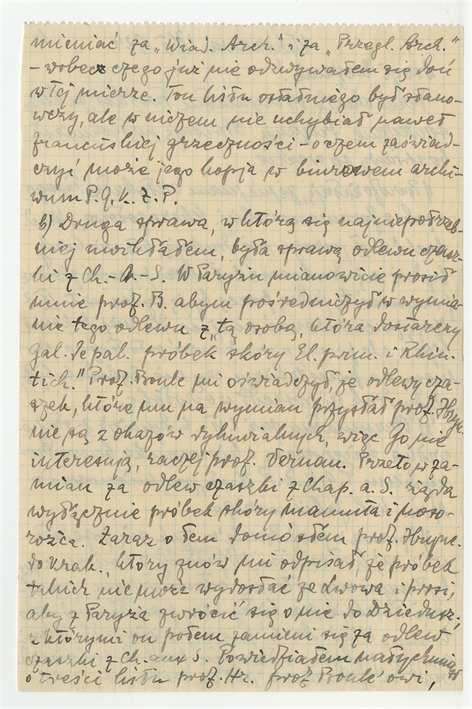 mieniać za „Wiad. Arch." i za „Przegl. Arch."
– wobec czego już nie odzywałem się doń
w tej mierze. Ton listu ostatniego był stano-
wczy, ale w niczem nie uchybiał nawet
francuskiej grzeczności – o czem zaświad-
czyć może jego kopja w biurowem archi-
wum P.G.K.Z.P.
b) Druga sprawa, w którą się najniepotrzeb-
niej wwikłałem, była sprawą odlewu czasz-
ki z Ch.-A.-S. W Paryżu mianowicie prosił
mnie prof. B. abym pośredniczył w wymia-
nie tego odlewu z „tą osobą, która dostarczy
Gal. de pal. próbek skóry El. prim. i Rhin.
tich." Prof. Boule mi oświadczył, że odlewy cza-
szek, które mu na wymian przysłał prof. Hryn.
nie są z okazów dyluwialnych, więc Go nie
interesują, raczej prof. Vernau. Przeto w za-
mian za odlew czaszki z Chap. a. S. żąda
wyłącznie próbek skóry mamuta i noso-
rożca. Zaraz o tem doniosłem prof. Hrync.
do Krak., który znów mi odpisał, że próbek
takich nie może wydostać ze Lwowa i prosi,
aby z Paryża zwrócić się o nie do Dziedusz.,
z którymi on potem zamieni się za odlew
czaszki z Ch. aux S. Powiedziałem natychmiast
o treści listu prof. Hr. prof. Boule'owi,